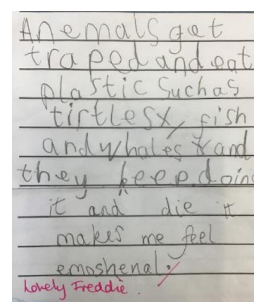 Anemals get
traped and eat
plastic Suchas
tirtles, fish
and whales and
they keep doing
it and die it
makes me feel
emoshenal.
Lovely Freddie.